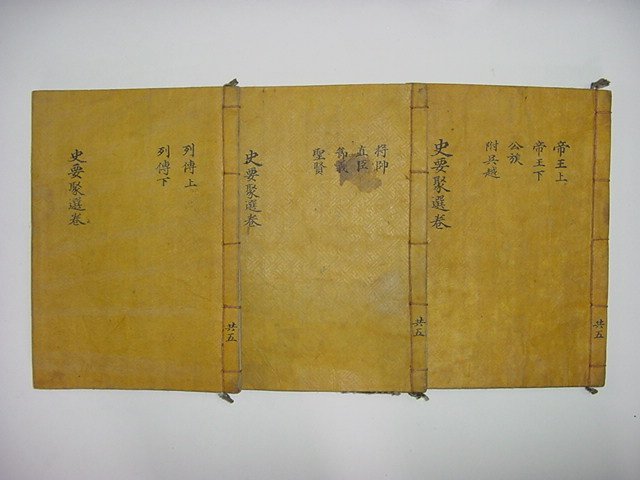 帝王上
帝王下
公族
附吳越
史要聚選卷
共五
將帥
直臣
節義
聖賢
史要聚選卷
共五
列傳上
列傳下
史要聚選卷
共五